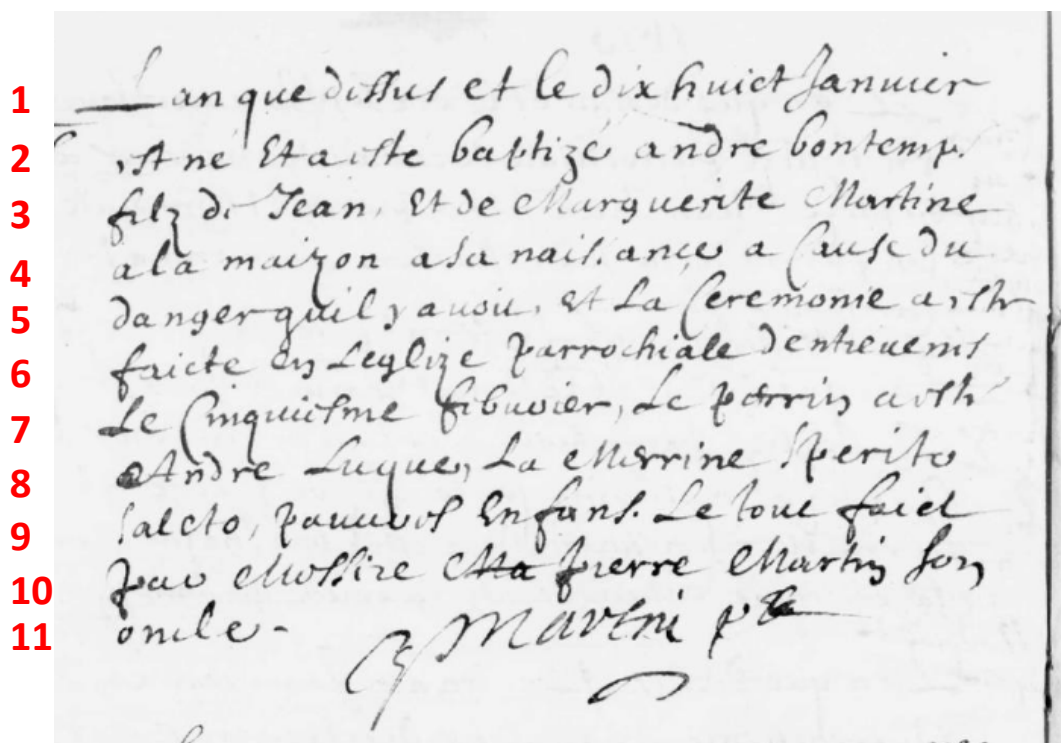 1 Lan que dissus et le dix huict Janvier
2 est né Et a este baptizé andre bontemp.
3 filz de Jean, Et de Marguerite Martine
4 a la maizon a sa naissance a Cause du
5 danger quil y avoit, et La Ceremonie a este
6 faicte en Leglize parrochiale dentrevenes
7 Le Cinquiesme febvrier, Le perrin a este
8 Andre Luque, La Merrine Sperite
9 Saleto, pauvres Enfans. Le tout faict
10 par Messire Ma pierre Martin son
11 oncle - Martin pbre